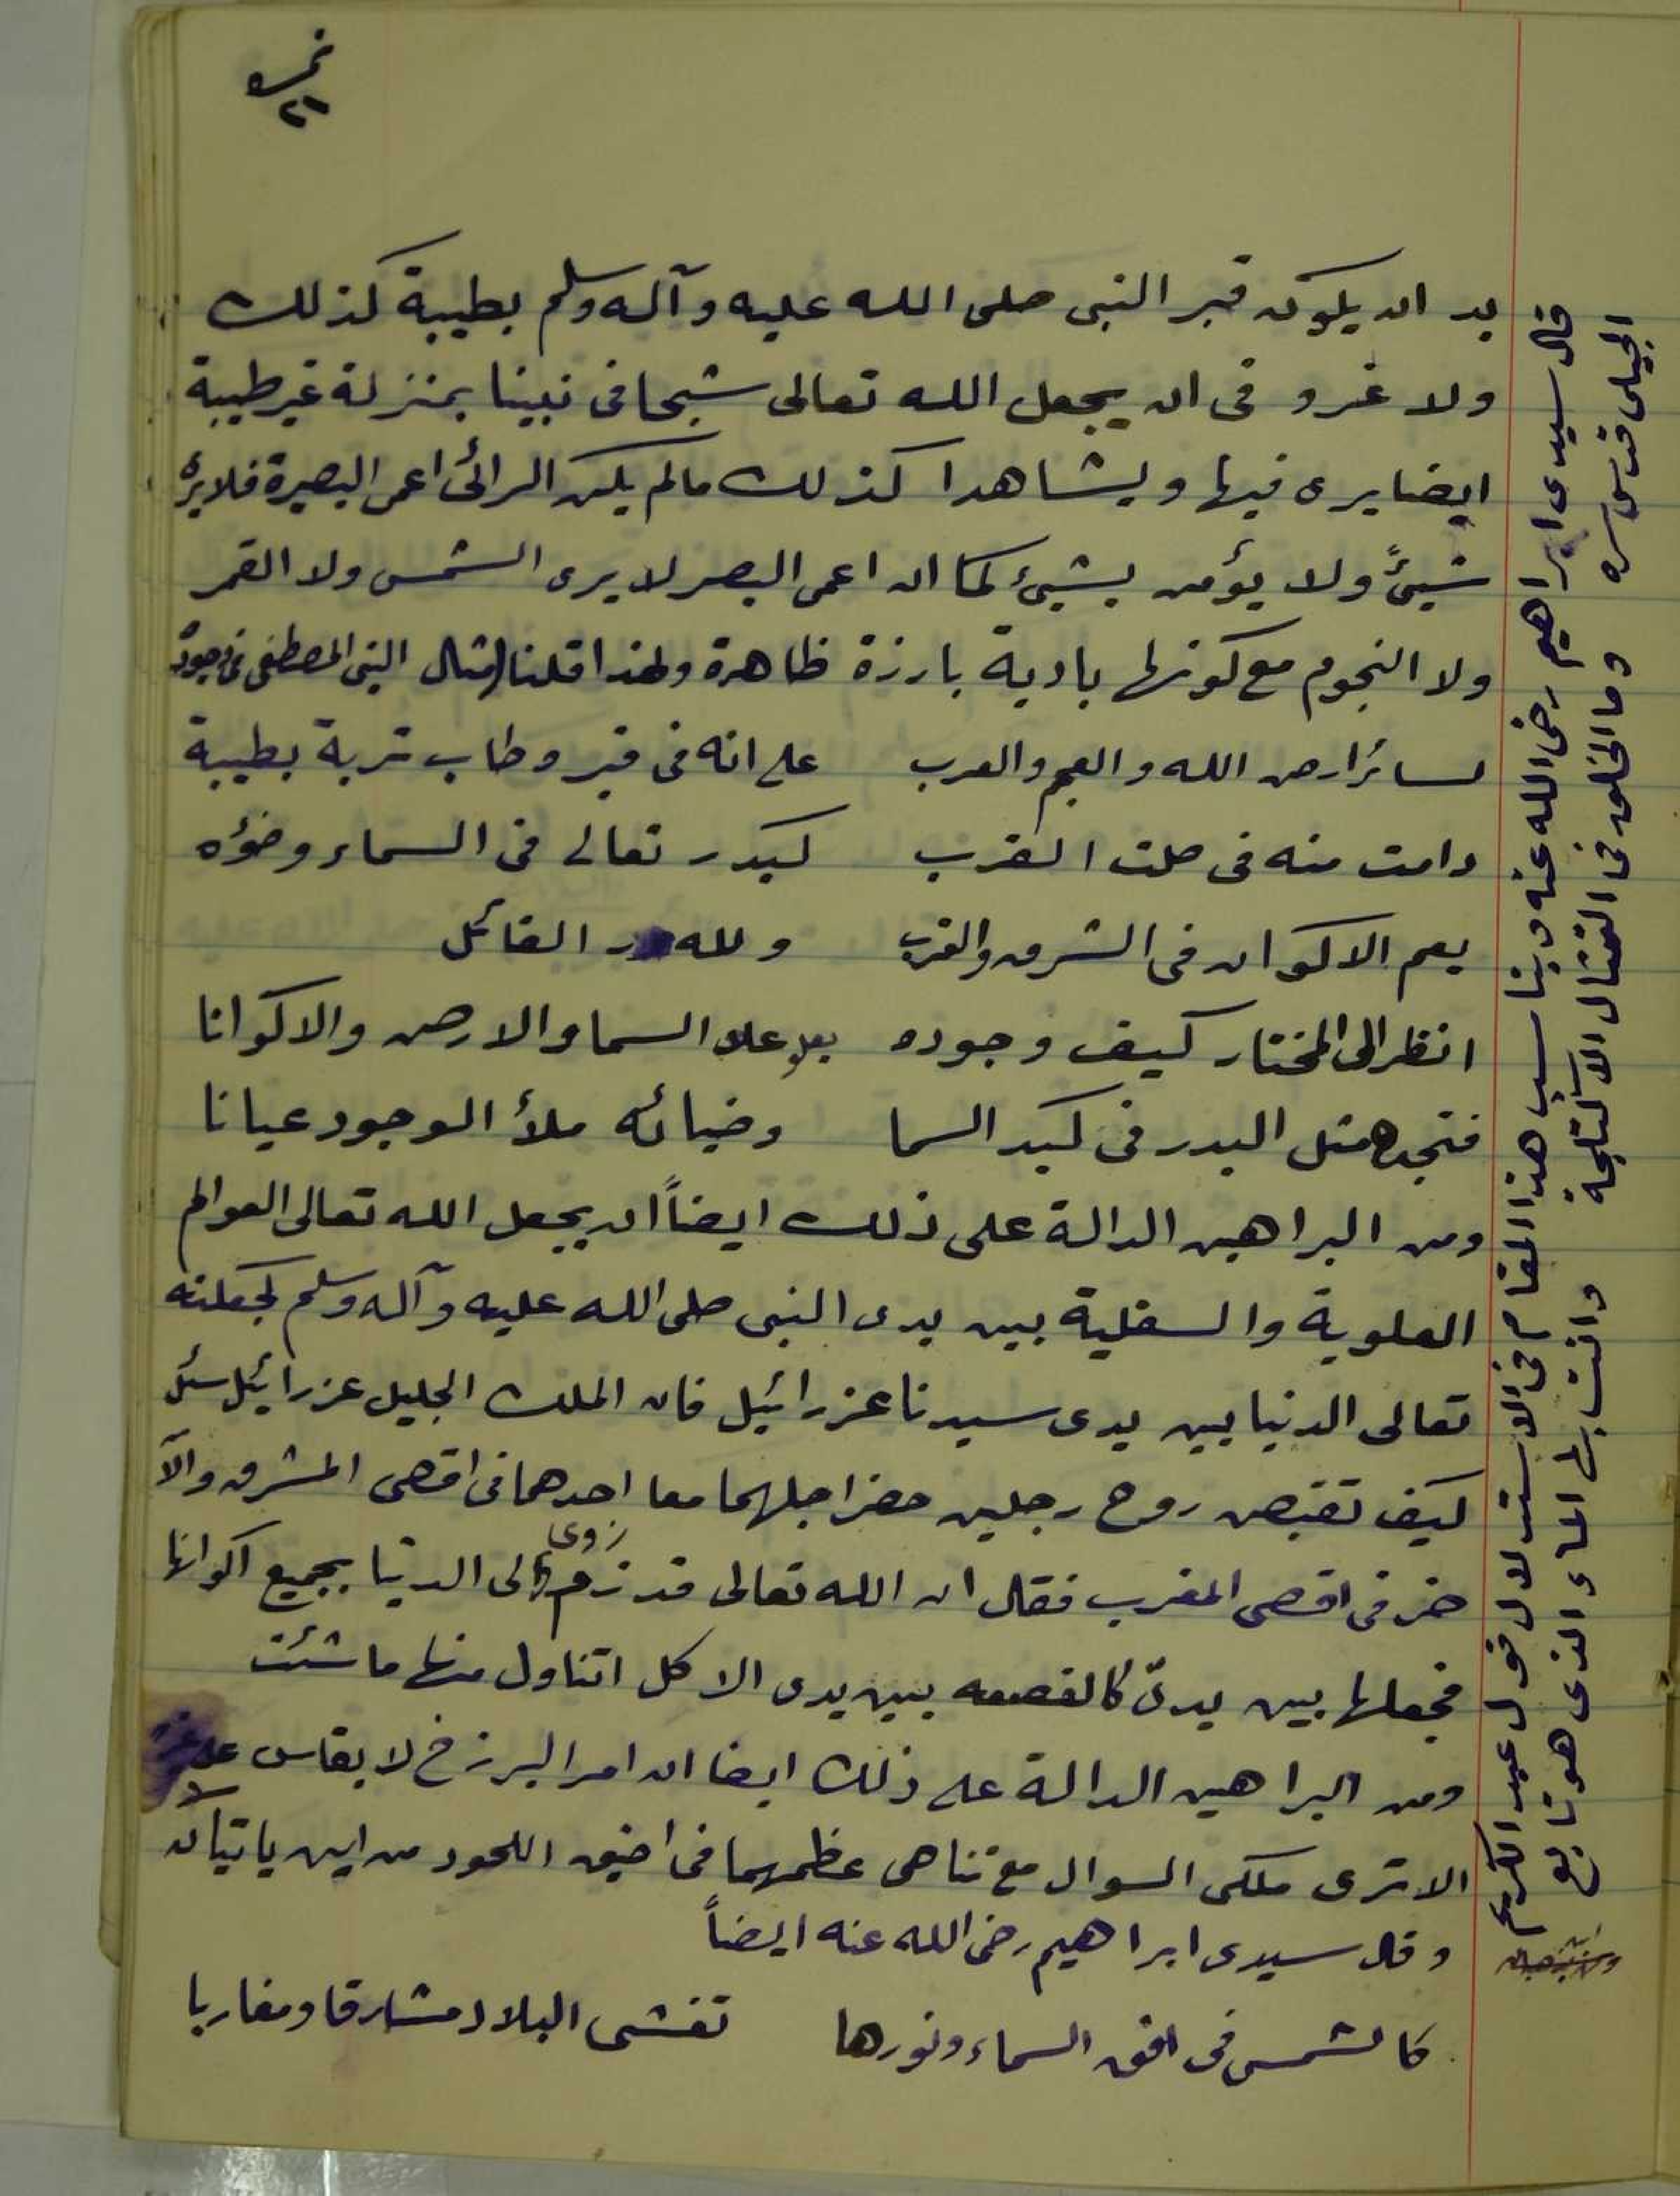 نمرة
٢١
بد ان يكون قبر النبى صلى الله عليه وآله وسلم بطيبة كذلك
ولا غرو فى ان يجعل الله تعالى شبحا فى نبينا بمنزلة غير طيبة
ايضا يرى فيها ويشاهدا كذلك مالم يكن الرائى اعمى البصيرة فلا يره
شيئً ولا يؤمن بشيئ كما ان اعمى البصر لا يرى الشمس ولا القمر
ولا النجوم مع كونها بادية بارزة ظاهرة ولهذا قلنا امثال النبى المصطفى فى وجوده
لسائر ارض الله والعجم والعرب على انه فى قبر وطاب تربة بطيبة
دامت منه فى صلت القرب كبدر تعالى فى السماء وضؤه
يعم الاكوان فى الشرق والغرب ولله در القائل
انظر الى المختار كيف وجوده يعلو على السما والارض والاكوانا
فتجده مثل البدر فى كبد السما وضيائه ملأ الوجود عيانا
ومن البراهين الدالة على ذلك ايضاً ان يجعل الله تعالى العوالم
العلوية والسفلية بين يدى النبى صلى الله عليه وآله وسلم كجعلته
تعالى الدنيا بين يدى سيدنا عزرائيل فان الملك الجليل عزرائيل سئل
كيف تقبض روح رجلين حضر اجلهما معا احدهما فى اقصى المشرق والآ
خر فى اقصى المغرب فقال ان الله تعالى قد زوى لى الدنيا بجميع اكوانها
فجعلها بين يدىّ كالقصعه بين يدى الاكل اتناول منها ما شئت
ومن البراهين الدالة على ذلك ايضا ان امر البرزخ لا يقاس على غيره
الا ترى ملكى السوال مع تناهى عظمهما فى اضيق اللحود من اين ياتيان
وقال سيدى ابراهيم رضى الله عنه ايضاً
كالشمس فى افق السماء ونورها تغشى البلاد مشارقا ومغاربا
قال سيدى ابراهيم رضى الله عنه ويناسب هذا المقام فى الاستدلال قول عبد الكريم
الجيلى قدس سره وما الخلق فى التمثال الا كثلجة وانت بها الماء الذى هو نابع